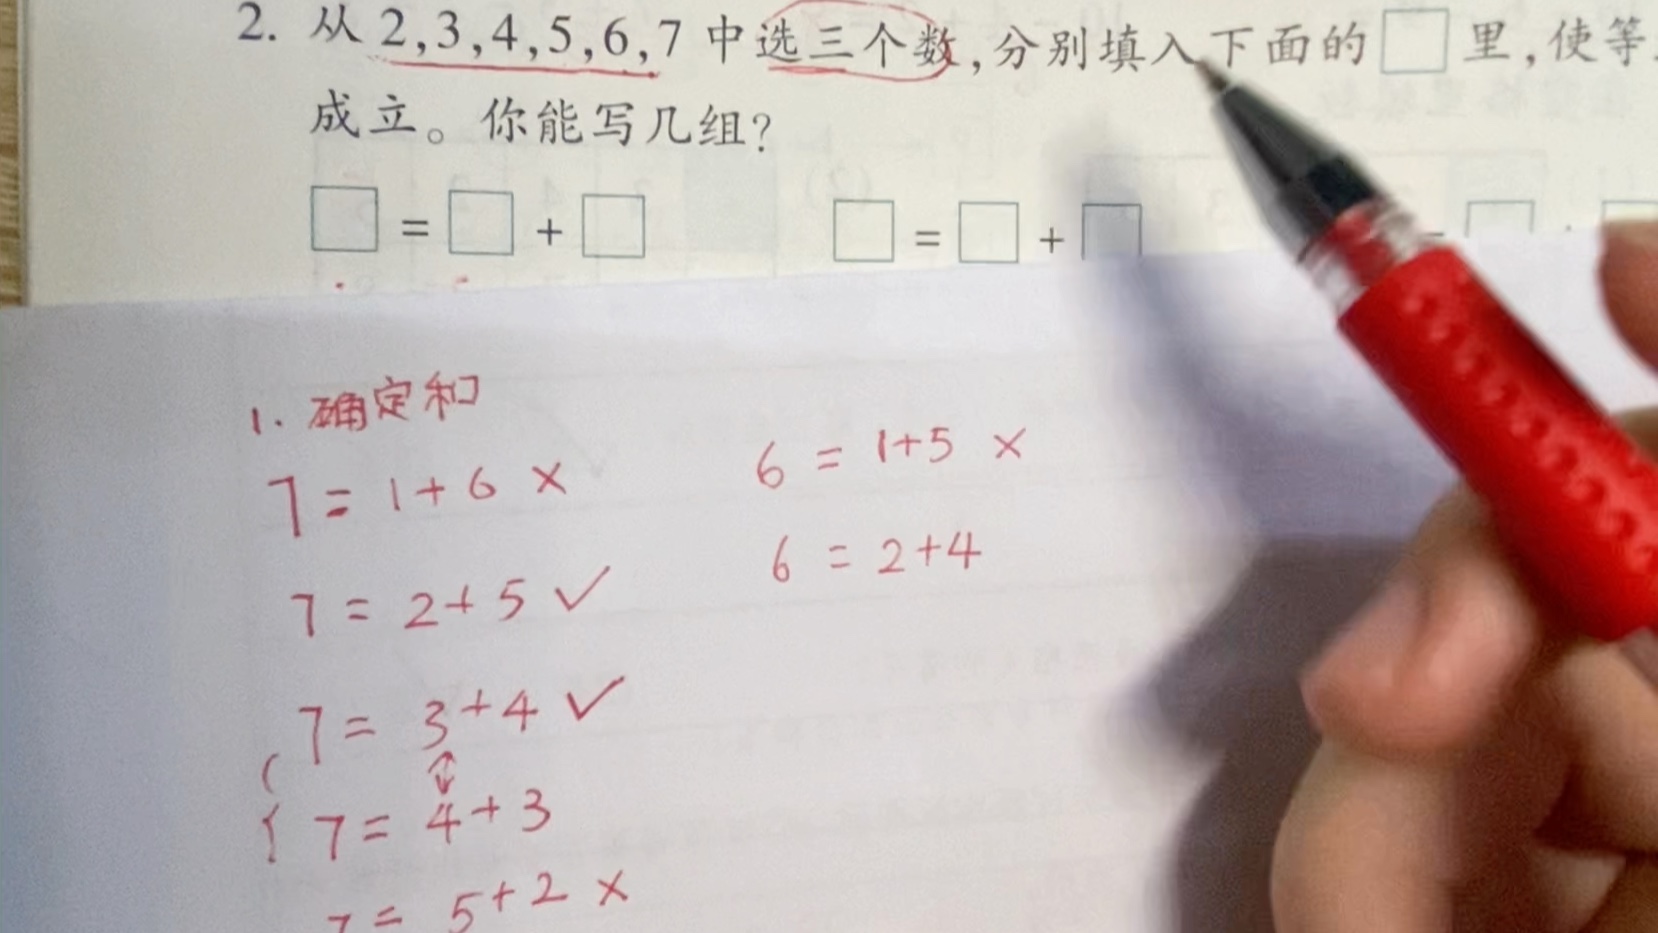 2. 从 2,3,4,5,6,7 中选三个数,分别填入下面的□里,使等
成立。你能写几组?
□=□+□ □=□+□
1. 确定和
7 = 1+6 ×
7 = 2+5 ✓
7 = 3+4 ✓
7 = 4+3
7 = 5+2 ×
6 = 1+5 ×
6 = 2+4